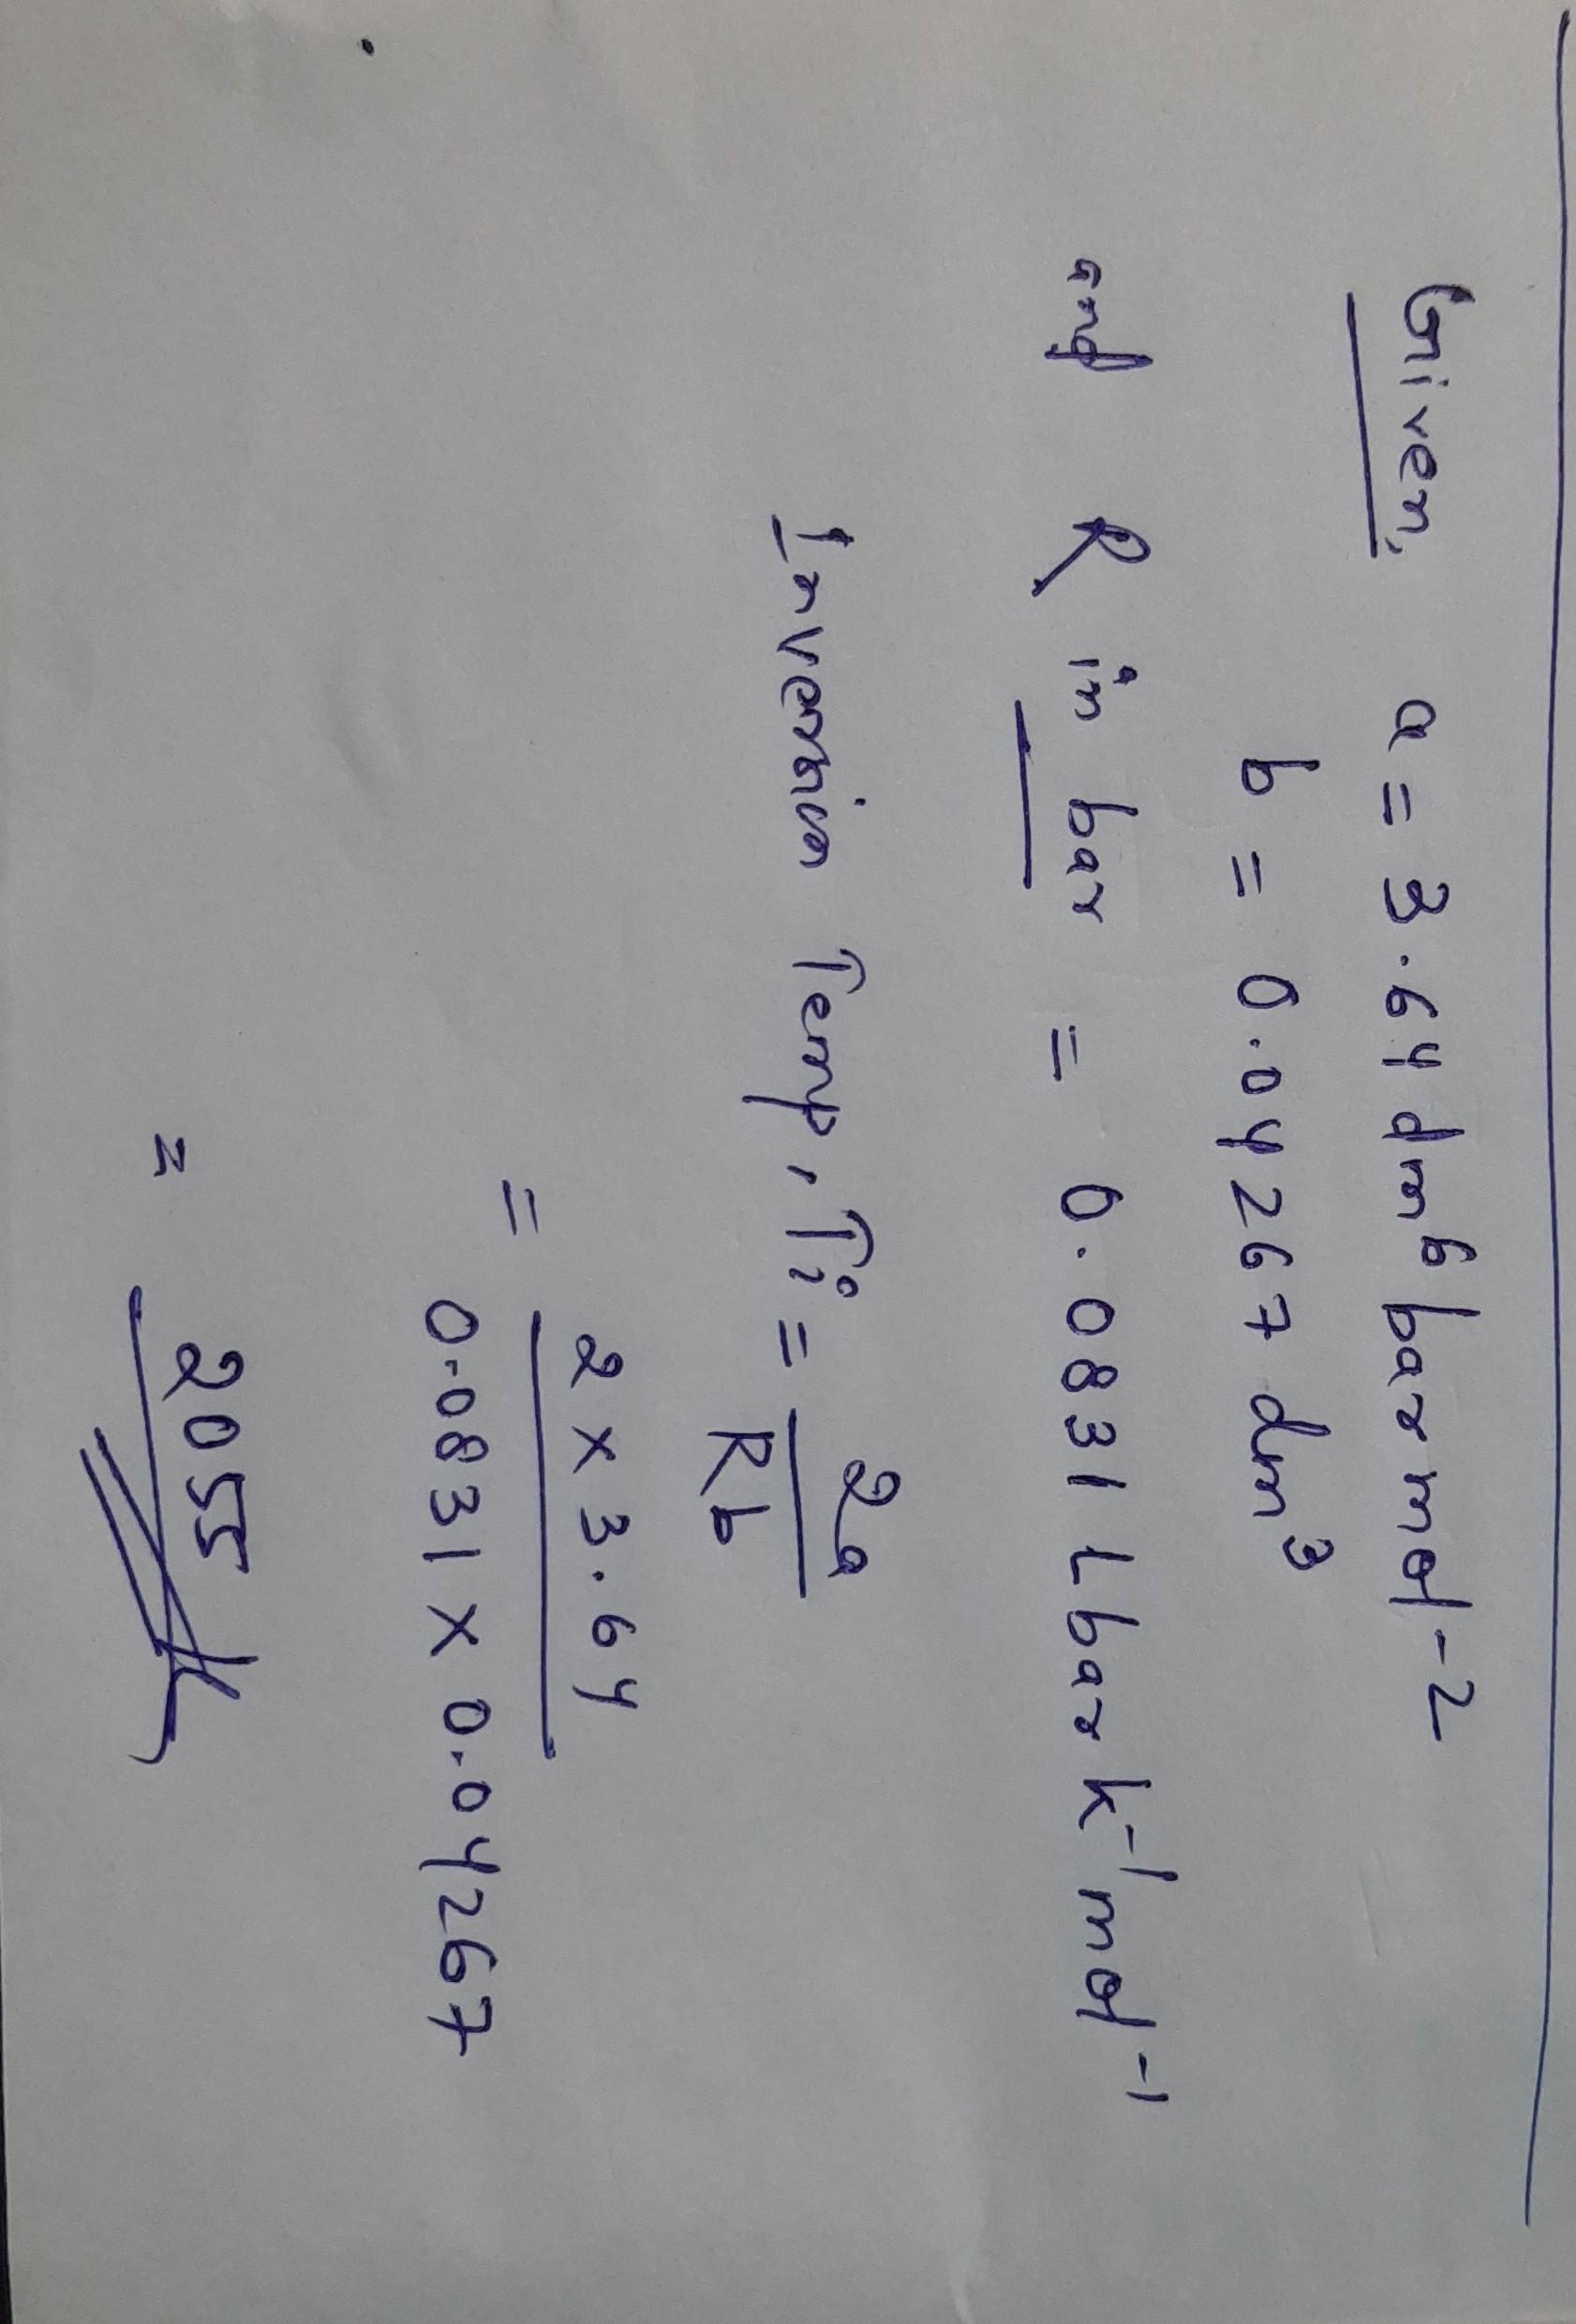 Given, a = 3.64 dm⁶ bar mol⁻²
b = 0.04267 dm³
and R in bar = 0.0831 L bar k⁻¹ mol⁻¹
Inversion Temp, Ti = 2a / Rb
= 2 × 3.64 / 0.0831 × 0.04267
= 2055 K